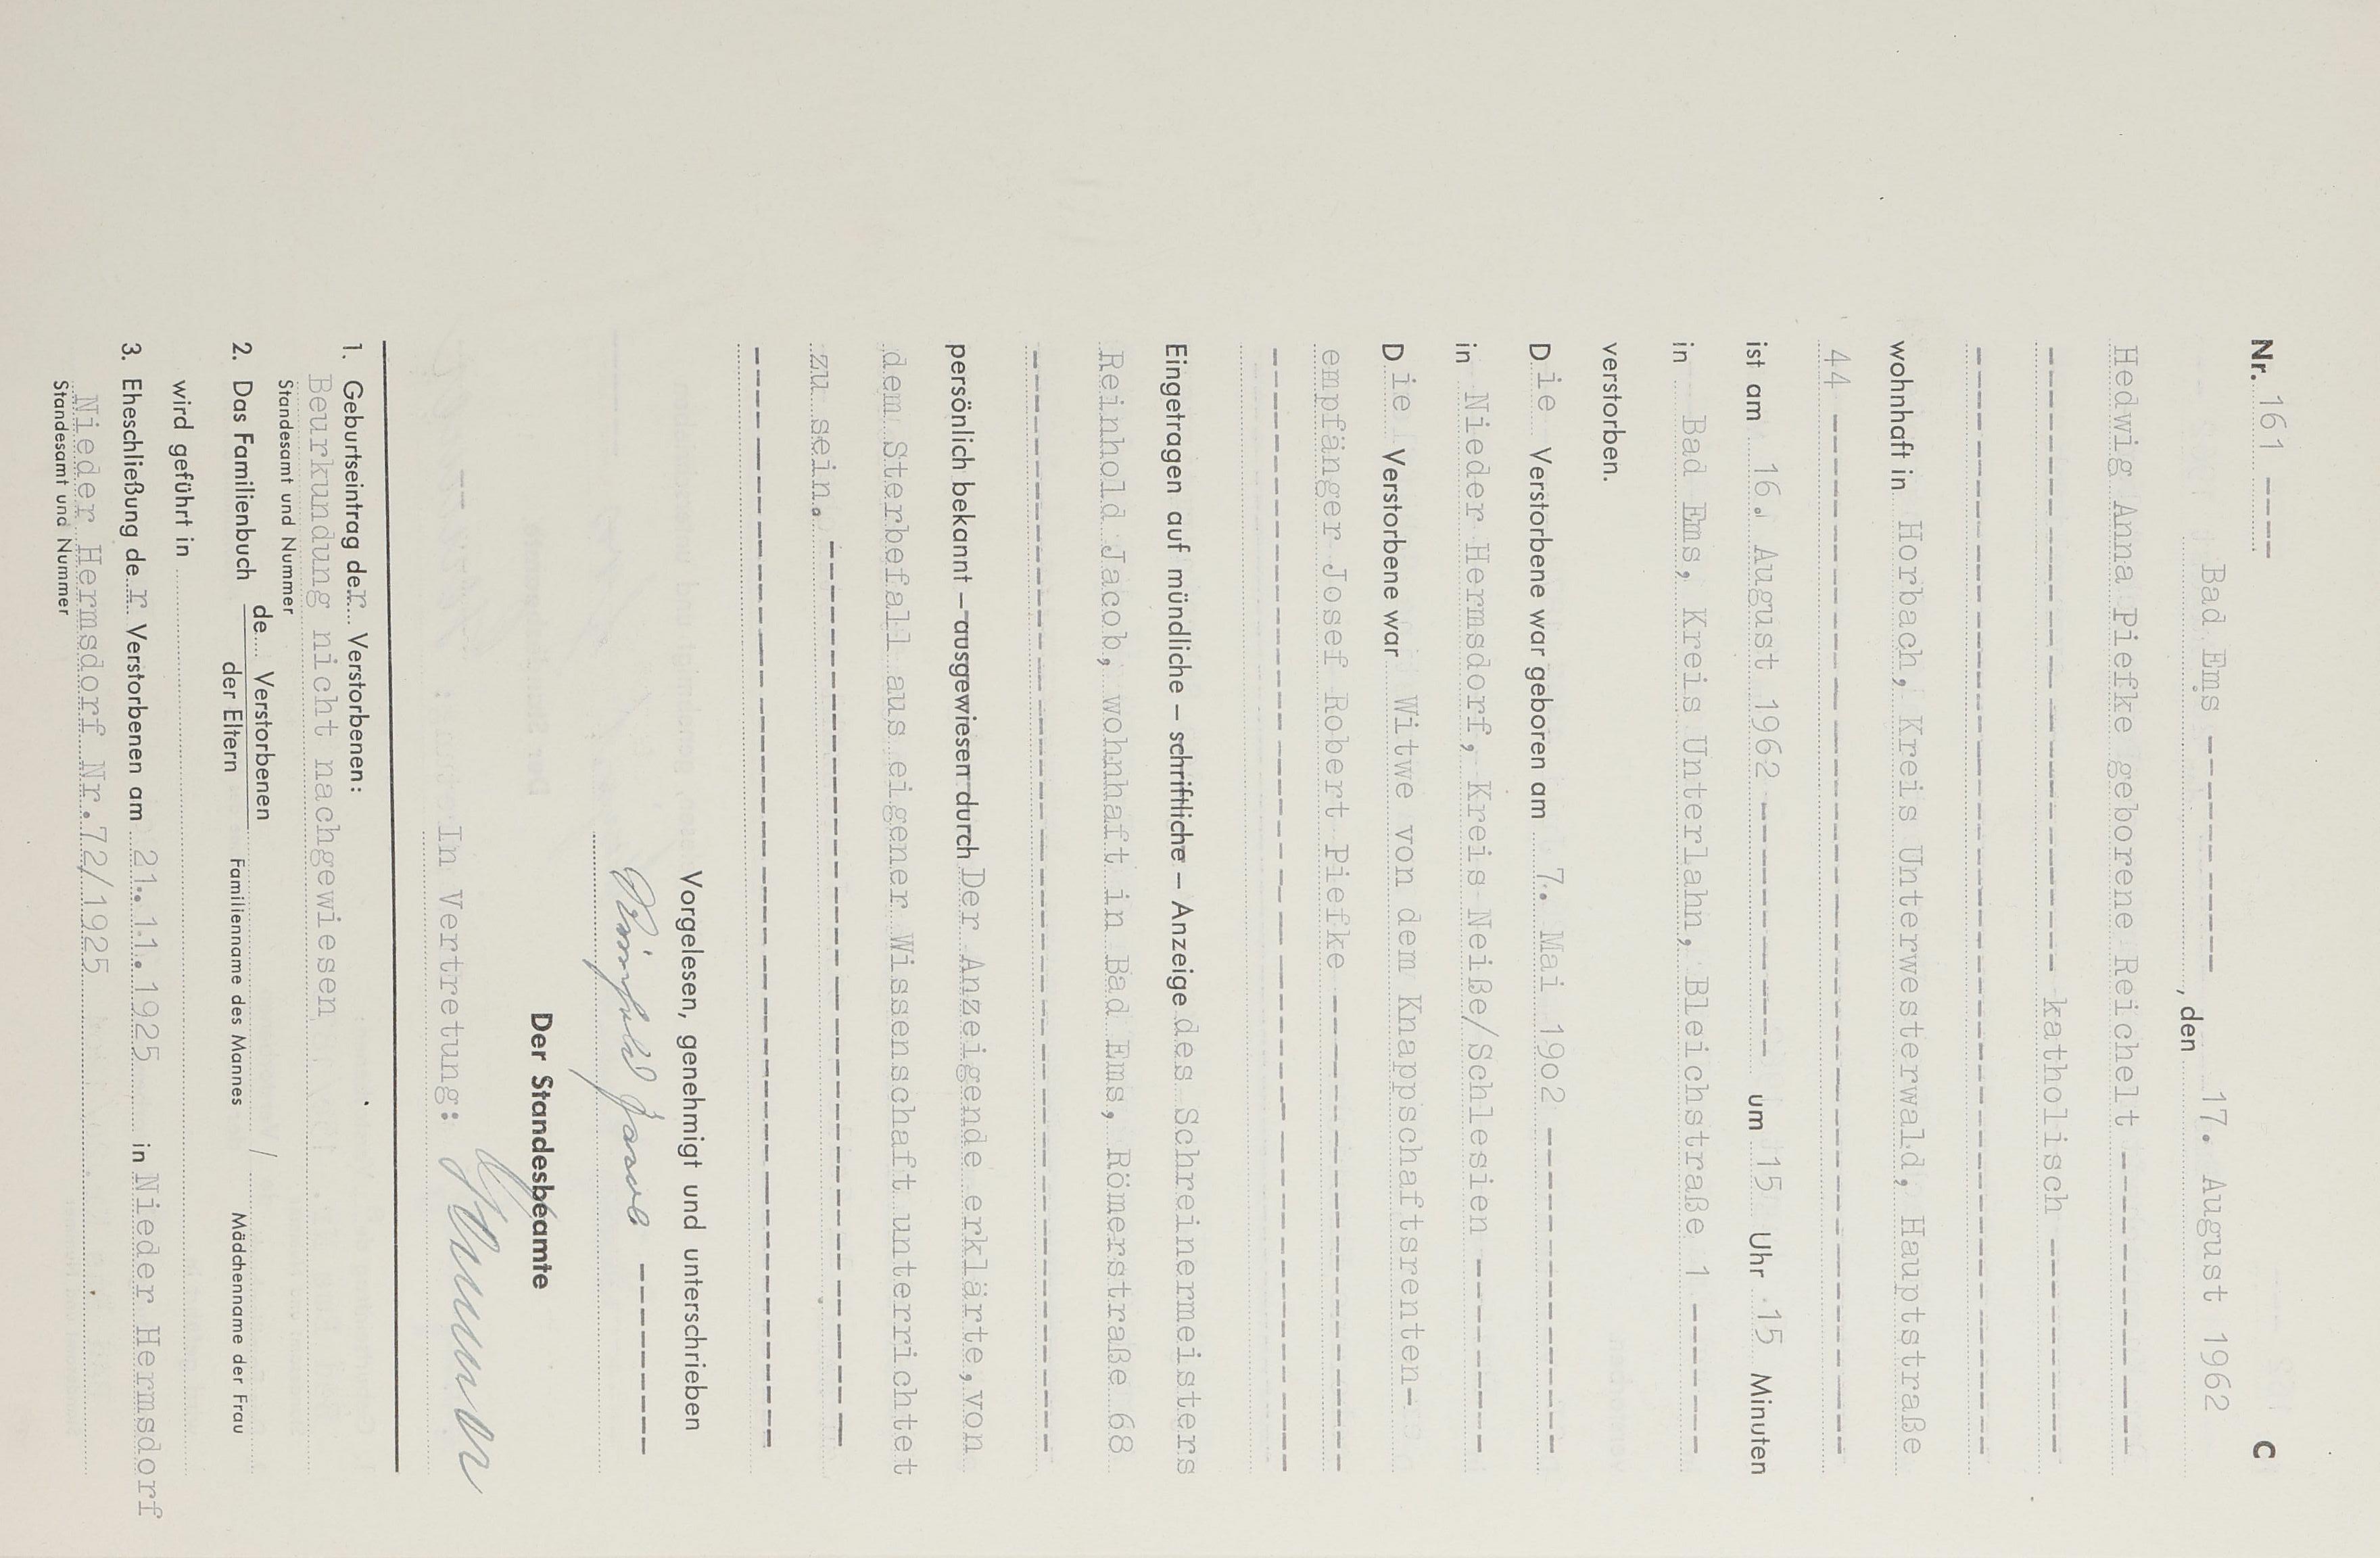 Nr. 161 ---- C
Bad Ems ----------, den 17. August 1962
Hedwig Anna Piefke geborene Reichelt ------------
---------------------- katholisch ---------
wohnhaft in Horbach, Kreis Unterwesterwald, Hauptstraße
44 ----------------------------------------
ist am 16. August 1962 ----------- um 15 Uhr 15 Minuten
in Bad Ems, Kreis Unterlahn, Bleichstraße 1 -------
verstorben.
Die Verstorbene war geboren am 7. Mai 19o2 --------------
in Nieder Hermsdorf, Kreis Neiße/Schlesien --------
Die Verstorbene war Witwe von dem Knappschaftsrenten-
empfänger Josef Robert Piefke --------------------
Eingetragen auf mündliche – schriftliche – Anzeige des Schreinermeisters
Reinhold Jacob, wohnhaft in Bad Ems, Römerstraße 68
persönlich bekannt – ausgewiesen durch Der Anzeigende erklärte, von
dem Sterbefall aus eigener Wissenschaft unterrichtet
zu sein. ----------------------------------
Vorgelesen, genehmigt und unterschrieben
Reinhold Jacob -------
Der Standesbeamte
In Vertretung:
1. Geburtseintrag der Verstorbenen:
Beurkundung nicht nachgewiesen
Standesamt und Nummer
2. Das Familienbuch de Verstorbenen / der Eltern
Familienname des Mannes / Mädchenname der Frau
wird geführt in
3. Eheschließung der Verstorbenen am 21.11.1925 in Nieder Hermsdorf
Nieder Hermsdorf Nr.72/1925
Standesamt und Nummer